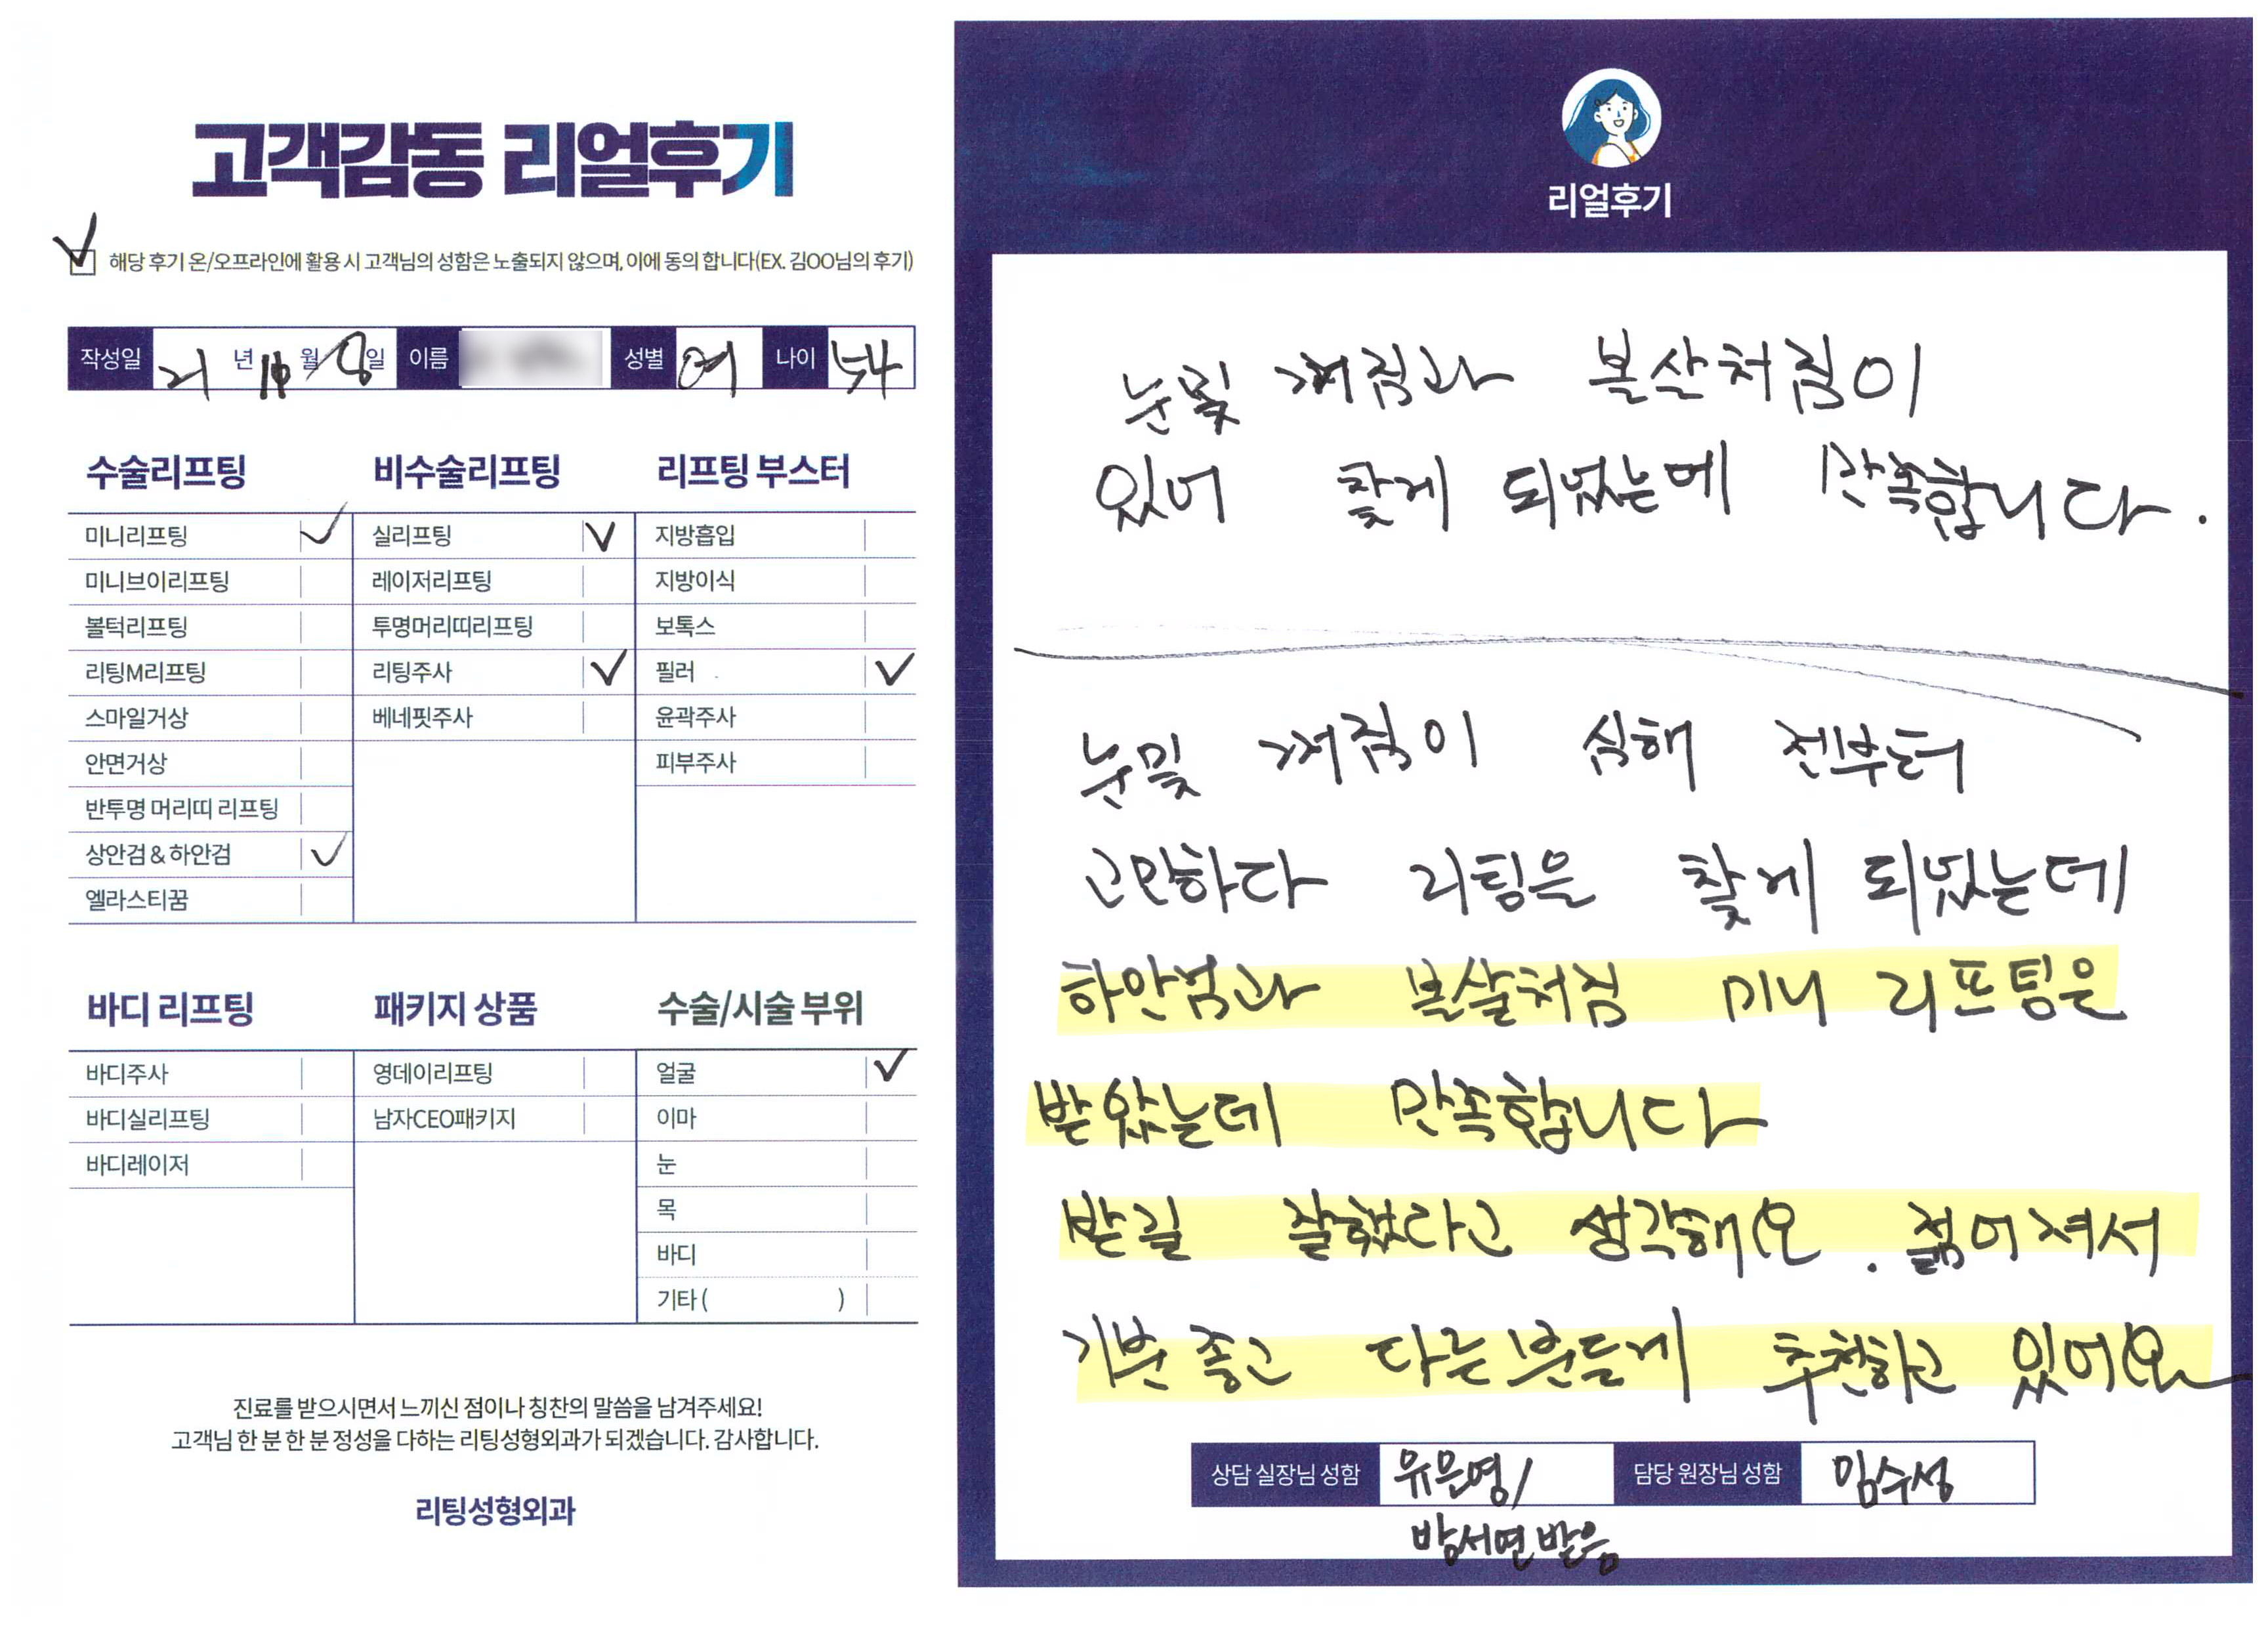 고객감동 리얼후기
해당 후기 온/오프라인에 활용 시 고객님의 성함은 노출되지 않으며, 이에 동의 합니다(EX. 김OO님의 후기)
작성일 21 년 월 8 일 이름 성별 여 나이 54
수술리프팅
미니리프팅
미니브이리프팅
볼턱리프팅
리팅M리프팅
스마일거상
안면거상
반투명 머리띠 리프팅
상안검 & 하안검
엘라스티꿈
비수술리프팅
실리프팅
레이저리프팅
투명머리띠리프팅
리팅주사
베네핏주사
리프팅 부스터
지방흡입
지방이식
보톡스
필러
윤곽주사
피부주사
바디 리프팅
바디주사
바디실리프팅
바디레이저
패키지 상품
영데이리프팅
남자CEO패키지
수술/시술 부위
얼굴
이마
눈
목
바디
기타 ( )
진료를 받으시면서 느끼신 점이나 칭찬의 말씀을 남겨주세요!
고객님 한 분 한 분 정성을 다하는 리팅성형외과가 되겠습니다. 감사합니다.
리팅성형외과
리얼후기
눈밑 꺼짐과 볼살처짐이
있어 찾게 되었는데 만족합니다.
눈밑 꺼짐이 심해 전부터
고민하다 리팅을 찾게 되었는데
하안검과 볼살처짐 미니 리프팅을
받았는데 만족합니다
받길 잘했다고 생각해요. 젊어져서
기분 좋고 다른분들게 추천하고 있어요
상담 실장님 성함 유은영/ 담당 원장님 성함 임수성
방서연 받음